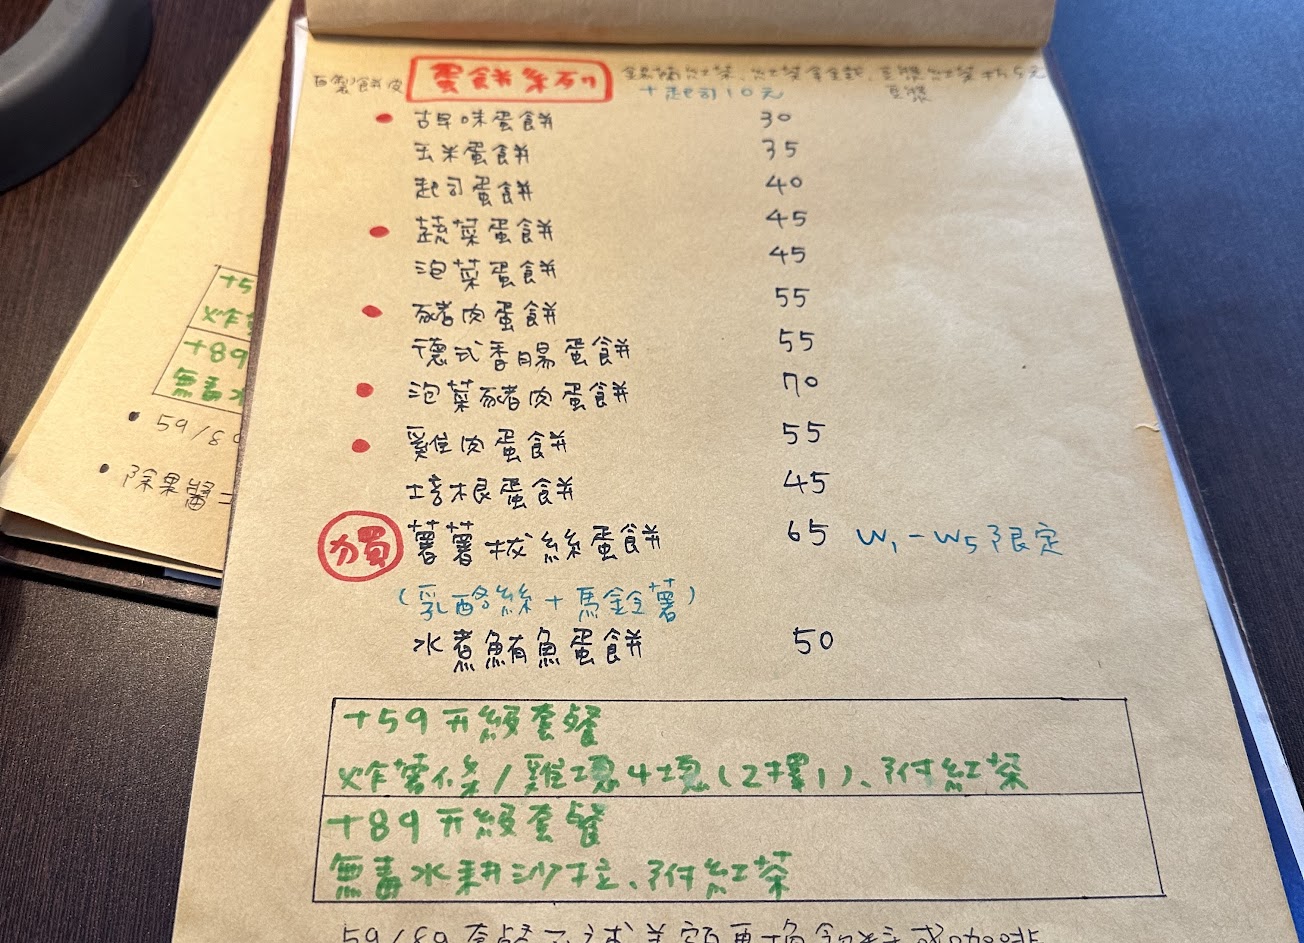 自製餅皮 蛋餅系列 錫蘭紅茶、紅茶拿鐵、豆漿紅茶折5元
+起司10元 豆漿
古早味蛋餅 30
玉米蛋餅 35
起司蛋餅 40
蔬菜蛋餅 45
泡菜蛋餅 45
豬肉蛋餅 55
德式香腸蛋餅 55
泡菜豬肉蛋餅 70
雞肉蛋餅 55
培根蛋餅 45
獨 薯薯拔絲蛋餅 65 W1-W5限定
(乳酪絲+馬鈴薯)
水煮鮪魚蛋餅 50
+59升級套餐
炸薯條/雞塊4塊(2擇1)、附紅茶
+89升級套餐
無毒水耕沙拉、附紅茶
59/89套餐
+5
炸
+89
無毒水
59/89
除果醬